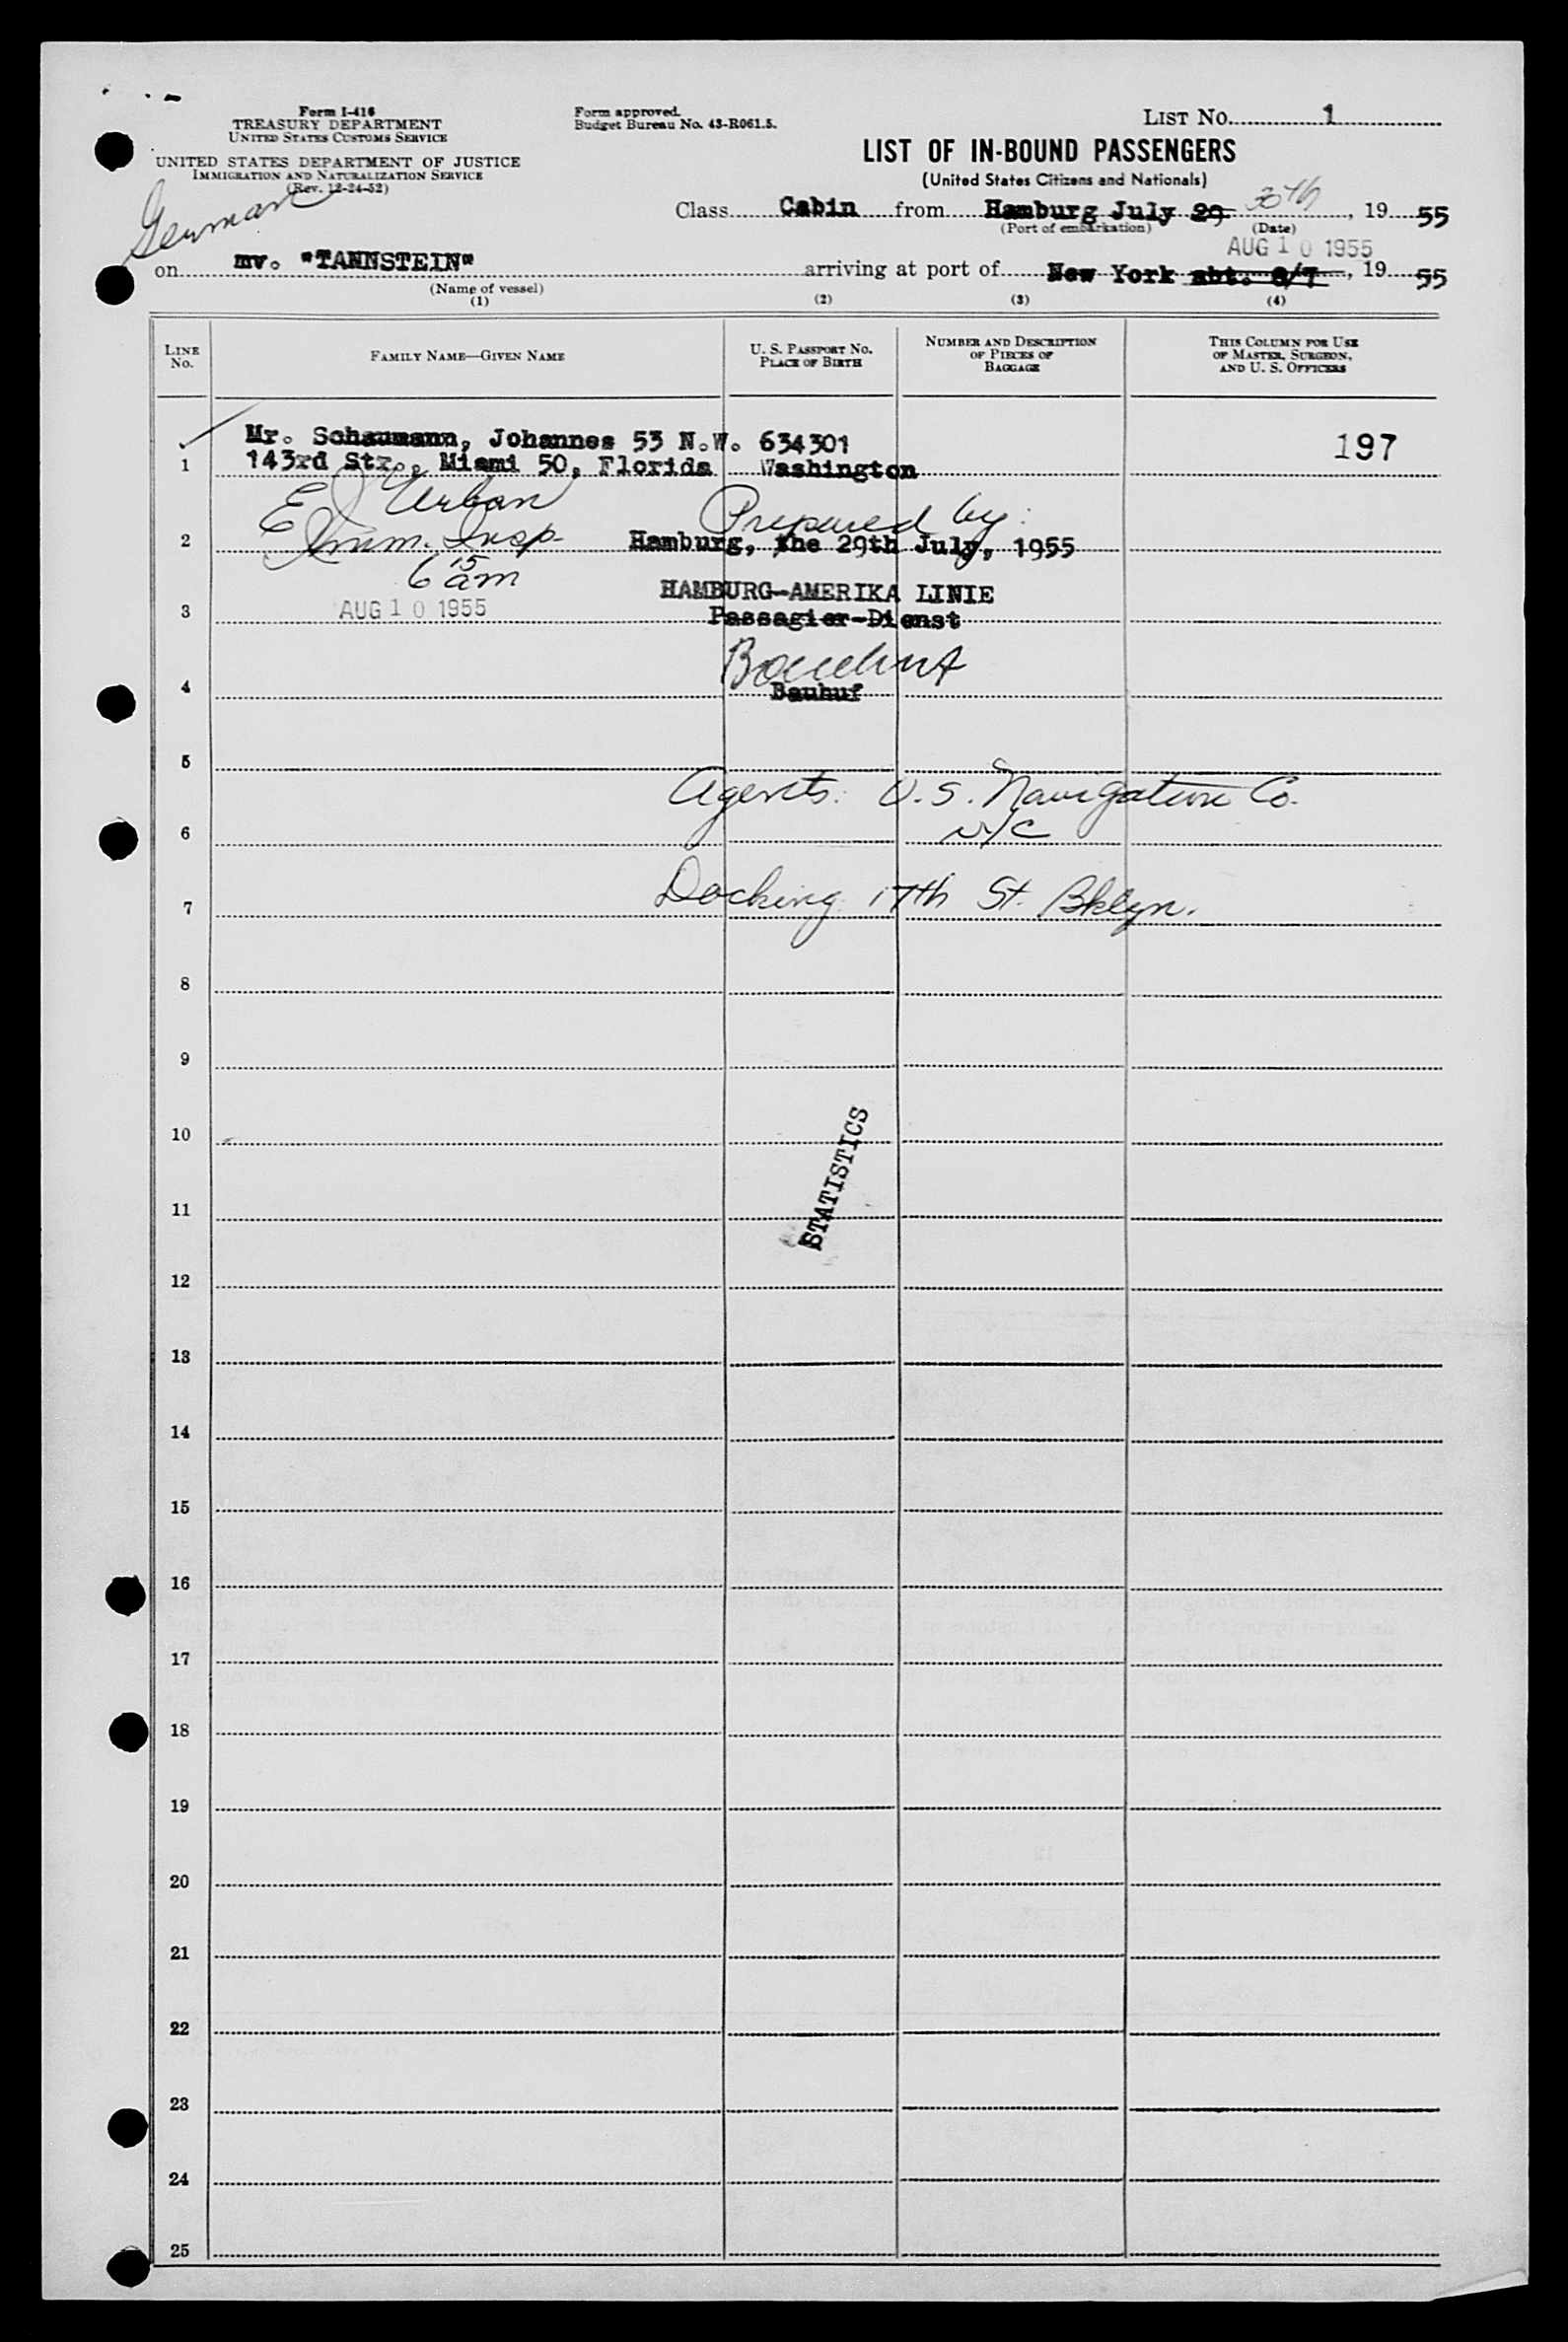 Form I-416
TREASURY DEPARTMENT
UNITED STATES CUSTOMS SERVICE
UNITED STATES DEPARTMENT OF JUSTICE
IMMIGRATION AND NATURALIZATION SERVICE
(Rev. 12-24-52)
German
Form approved.
Budget Bureau No. 43-R061.5.
LIST No. 1
LIST OF IN-BOUND PASSENGERS
(United States Citizens and Nationals)
Class Cabin from Hamburg July 29 30th, 19 55
(Port of embarkation) (Date)
AUG 10 1955
on mv. "TANNSTEIN" arriving at port of New York abt. 8/7, 19 55
(Name of vessel)
(1) (2) (3) (4)
LINE No.
FAMILY NAME—GIVEN NAME
U. S. PASSPORT No.
PLACE OF BIRTH
NUMBER AND DESCRIPTION
OF PIECES OF
BAGGAGE
THIS COLUMN FOR USE
OF MASTER, SURGEON,
AND U. S. OFFICERS
Mr. Schaumann, Johannes 53 N.W. 634301 197
1 143rd Str., Miami 50, Florida Washington
E J Urban Prepared by:
2 Imm. Insp. Hamburg, the 29th July, 1955
6 15 am
HAMBURG-AMERIKA LINIE
3 AUG 10 1955 Passagier-Dienst
4 Bauhuf
5
Agents: U.S. Navigation Co.
6 NYC
7 Docking 17th St. Bklyn.
8
9
10
STATISTICS
11
12
13
14
15
16
17
18
19
20
21
22
23
24
25